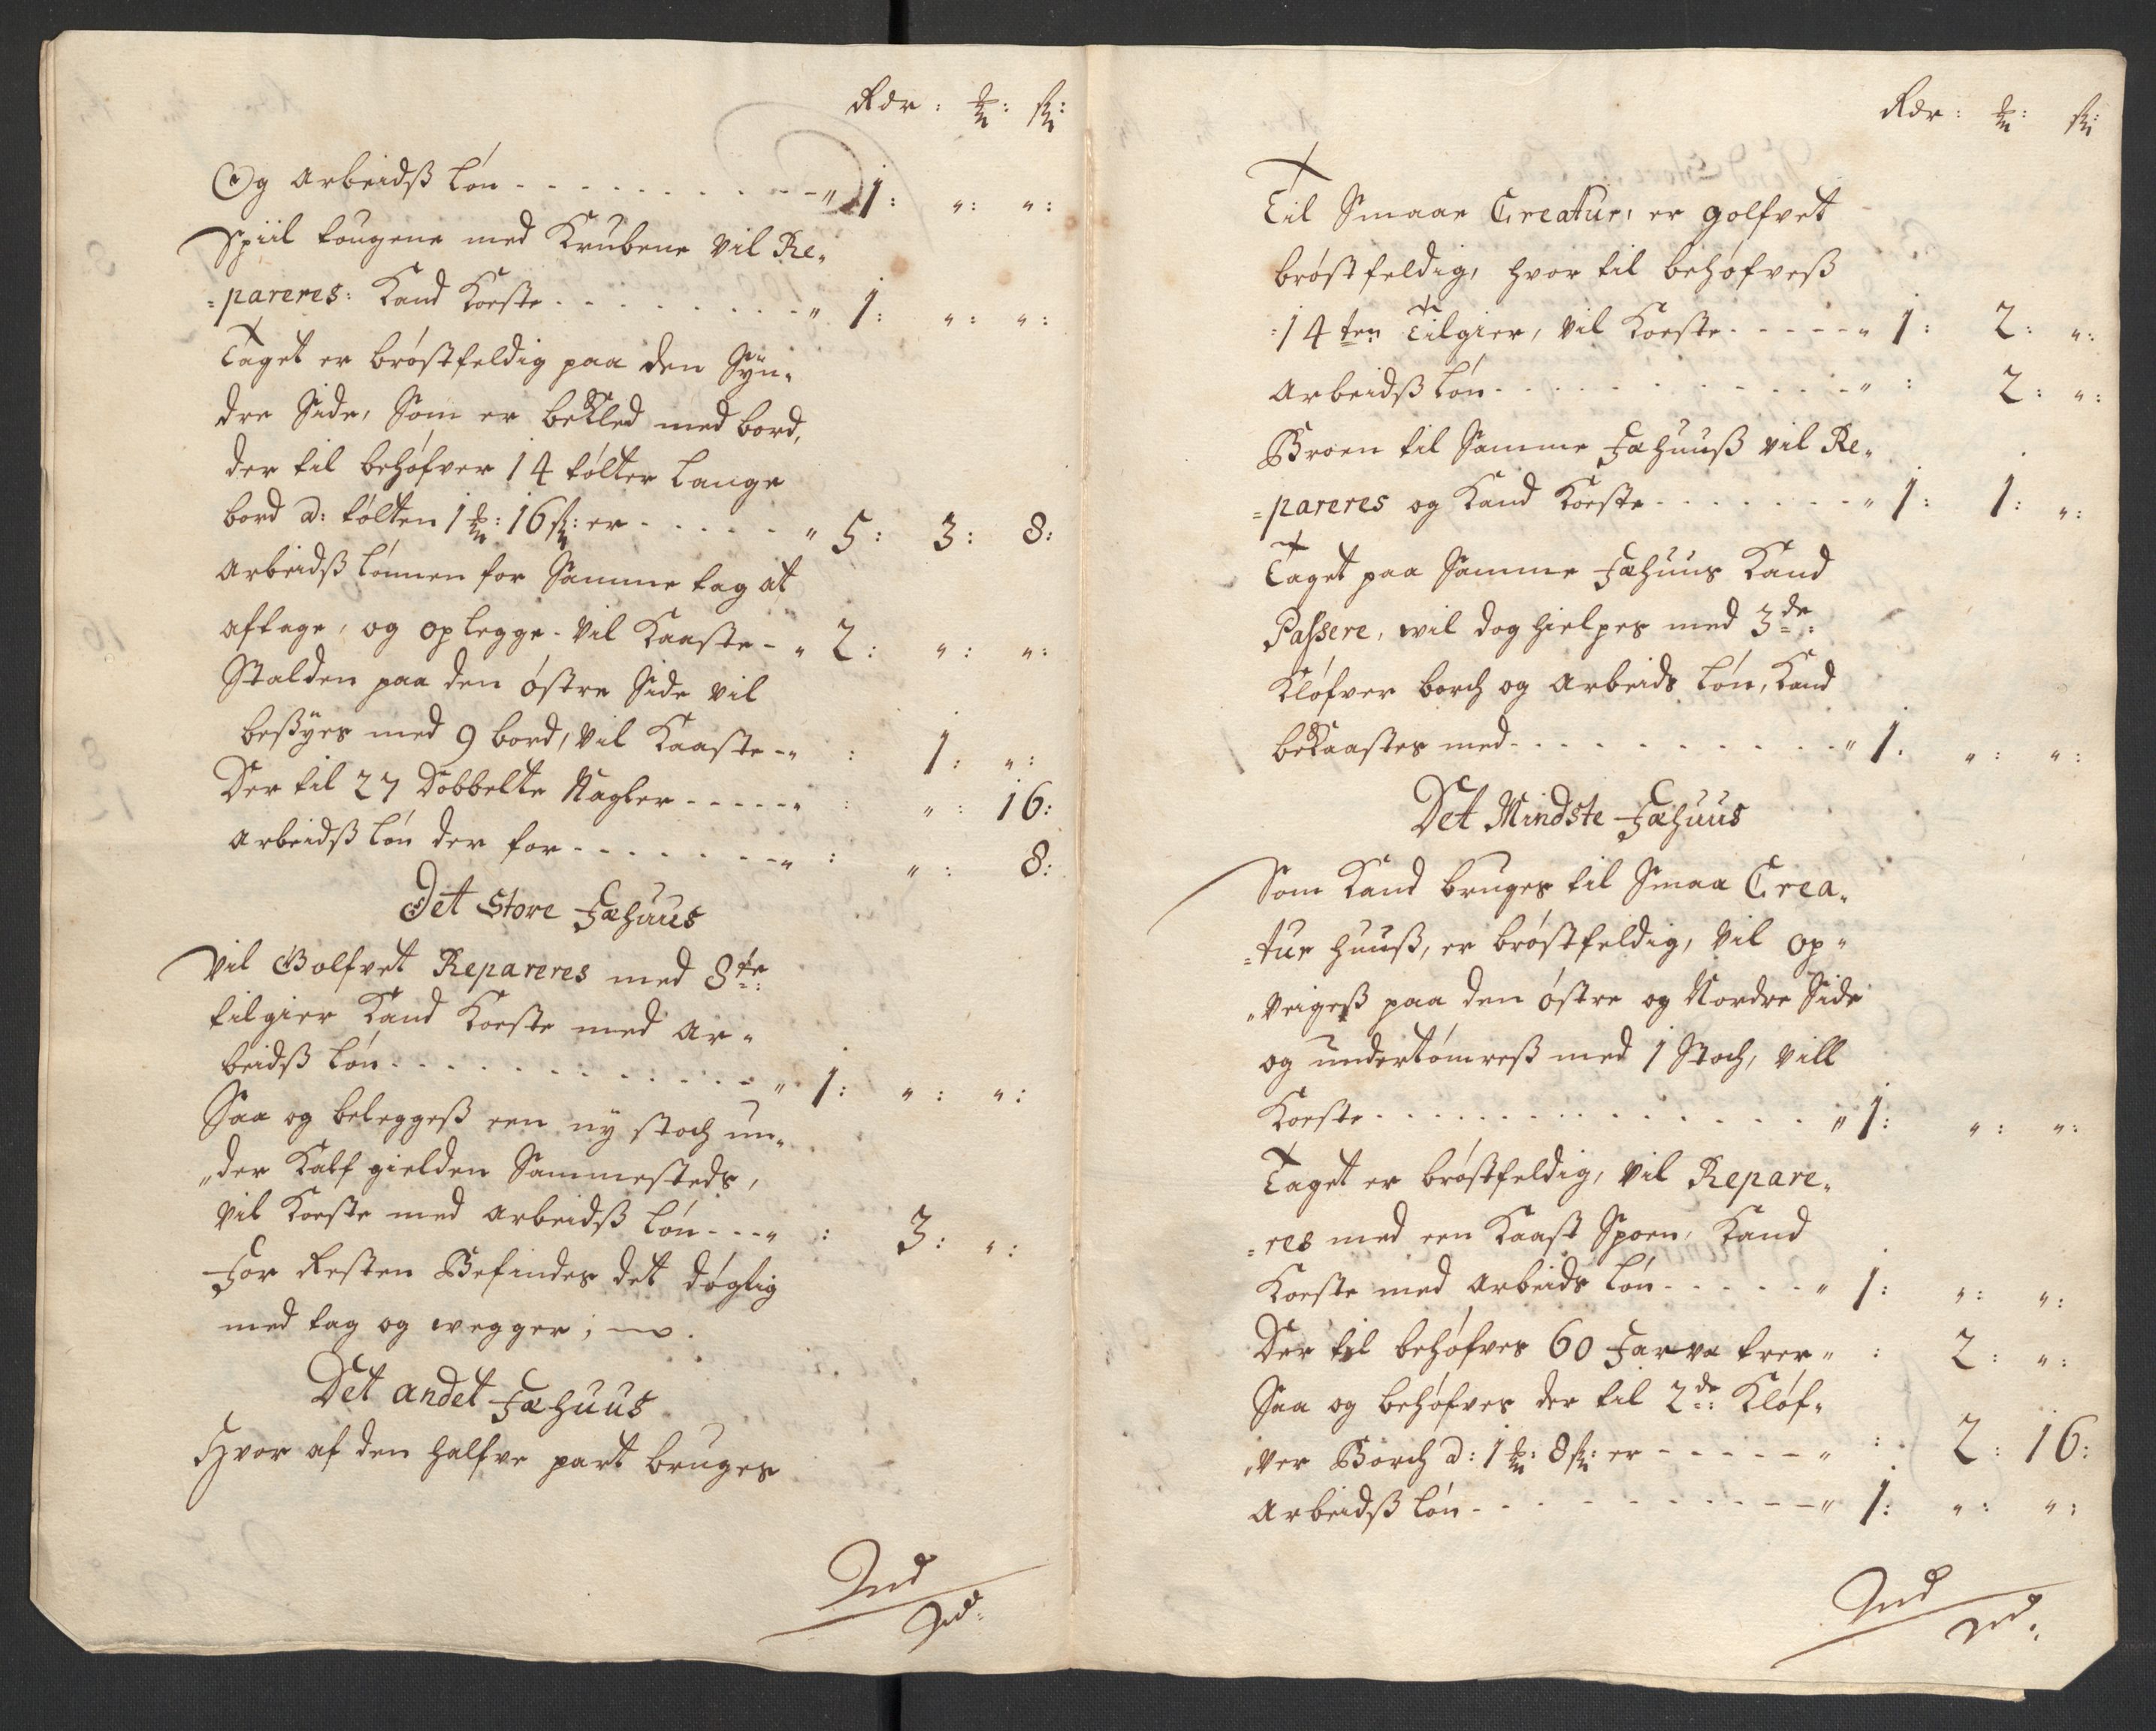 Rdr: ℔: ſk:
Og arbeidß løn - - - - - - - - - - - „ 1: „: „:
Spiil tougene med Krubene vil Re„
=pareres: Kand Koste - - - - - - - - - „ 1: „: „:
Taget er brøstfeldig paa den Syn„
dre Side, Som er beklæd med bord,
der til behøfver 14 tølter Lange
bord a: tølten 1 ℔: 16 ſk: er - - - - - „ 5: 3: 8:
Arbeidß lønnen for Samme tag at
aftage, og oplegge. Vil Kaaste - „ 2: „: „:
Stalden paa den østre Side vil
beßyes med 9 bord, vil Kaaste - „ : 1: „:
Der til 27 Dobbelte Nagler - - - - - „ : „: 16:
Arbeidß løn der for - - - - - - - „ : „: 8:
Det Store Fæhuus
Vil Golfvet Repareres med 8te:
tilgier Kand Koste med ar„
beidß løn - - - - - - - - - - - - „ 1: „: „:
Saa og beleggeß een ny stoch un„
„der Kalf gielden Sammesteds,
vil Koste med arbeidß løn - - - „ : 3: „:
For Resten Befindes det døgtig
med tag og wegger;
Det andet Fæhuus
Hvor af den halfve part bruges
Rdr: ℔: ſk:
Til Smaae Creatur, er golfvet
brøstfeldig, hvor til behøfveß
14ten Tilgier, vil Koste - - - - - „ 1: 2: „:
Arbeidß løn - - - - - - - - - - - - „ : 2: „:
Broen til Samme Fæhuuß vil Re„
=pareres og Kand Koste - - - - - - - „ 1: 1: „:
Taget paa Samme Fæhuus Kand
Passere, wil dog hielpes med 3de:
Kløfver borch og arbeids løn, Kand
bekaastes med - - - - - - - - - - - „ 1. „: „:
Det Mindste Fæhuus
Som Kand bruges til Smaa Crea„
=tur huuß, er brøstfeldig, vil op„
„veigeß paa den østre og Nordre Side
og undertømreß med 1 Stoch, vill
Koste - - - - - - - - - - - - - - - „ 1: „: „:
Taget er brøstfeldig, vil Repare„
=res med een Kaast Spoen, Kand
Koste med arbeids løn - - - - - „ 1: „: „:
Der til behøfves 60 Farva træer „ : 2: „:
Saa og behøfves der til 2de: Kløf„
„ver Borch a: 1 ℔: 8 ſk: er - - - - - - „ : 2: 16:
Arbeidß løn - - - - - - - - - - - - „ 1: „: „: